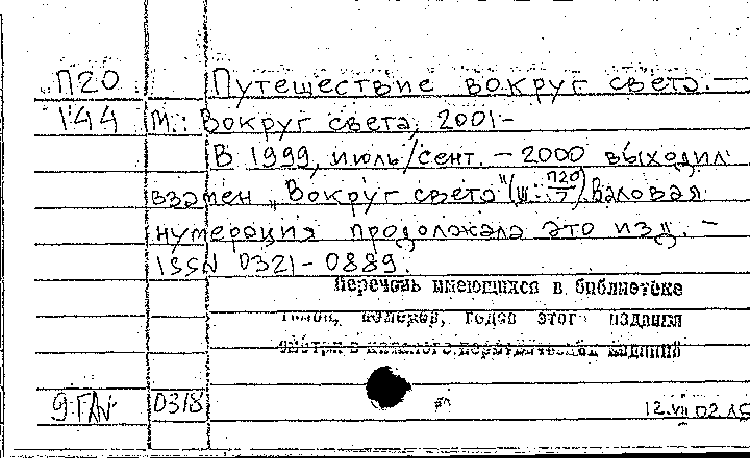 П20 Путешествие вокруг света. —
144 М.: Вокруг света, 2001-
В 1999, июль/сент. - 2000 выходил
взамен „Вокруг света" (Ш: П20/7). Валовая
нумерация продолжала это изд. —
ISSN 0321-0889.
Перечень имеющихся в библиотеке
томов, номеров, годов этого издания
смотри в каталоге периодических изданий
0318
12.VII 02